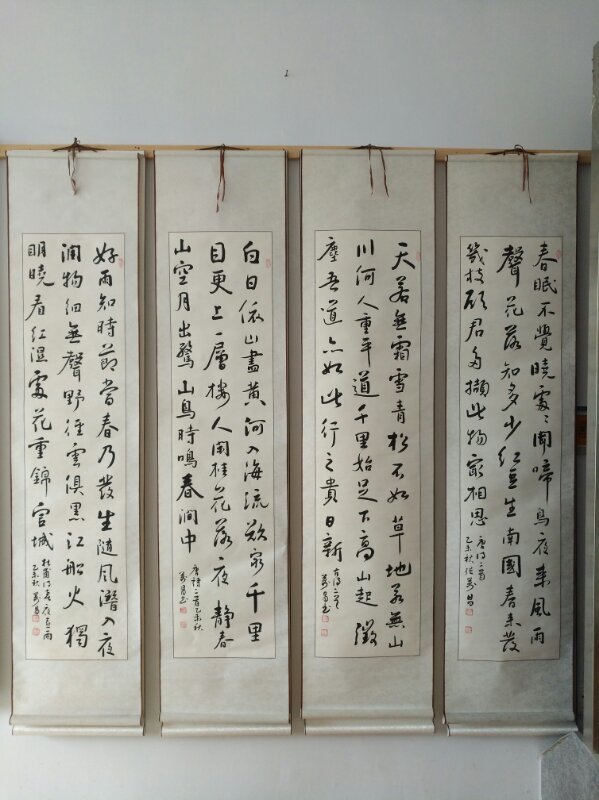 春眠不覺曉處〻聞啼鳥夜来風雨
聲花落知多少紅豆生南國春来發
幾枝願君多擷此物最相思
唐詩二首
乙未秋
天若無霜雪青松不如草地若無山
川何人重平道千里始足下高山起微
塵吾道亦如此行之貴日新
白日依山盡黄河入海流欲窮千里
目更上一層樓人閑桂花落夜静春
山空月出驚山鳥時鳴春澗中
唐詩二首
好雨知時節當春乃發生随風潛入夜
潤物細無聲野徑雲俱黑江船火獨
明曉看紅濕處花重錦官城
杜甫詩春夜喜雨
乙未秋